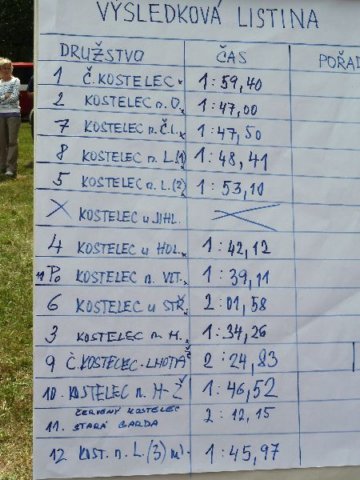 VÝSLEDKOVÁ LISTINA
DRUŽSTVO ČAS POŘAD
1 Č. KOSTELEC 1:59,40
2 KOSTELEC n. O. 1:47,00
7 KOSTELEC n. Č.l. 1:47,50
8 KOSTELEC n. L.(1) 1:48,41
5 KOSTELEC n. L.(2) 1:53,10
X KOSTELEC u JIHL.
4 KOSTELEC u HOL. 1:42,12
KOSTELEC n. VLT. 1:39,11
6 KOSTELEC u STŘ. 2:01,58
3 KOSTELEC n. H. 1:34,26
9 Č. KOSTELEC-LHOTA 2:24,83
10. KOSTELEC n. H-Ž 1:46,52
ČERVENÝ KOSTELEC
11. STARÁ GARDA 2:12,15
12 KOST. n. L.(3) 1:45,97